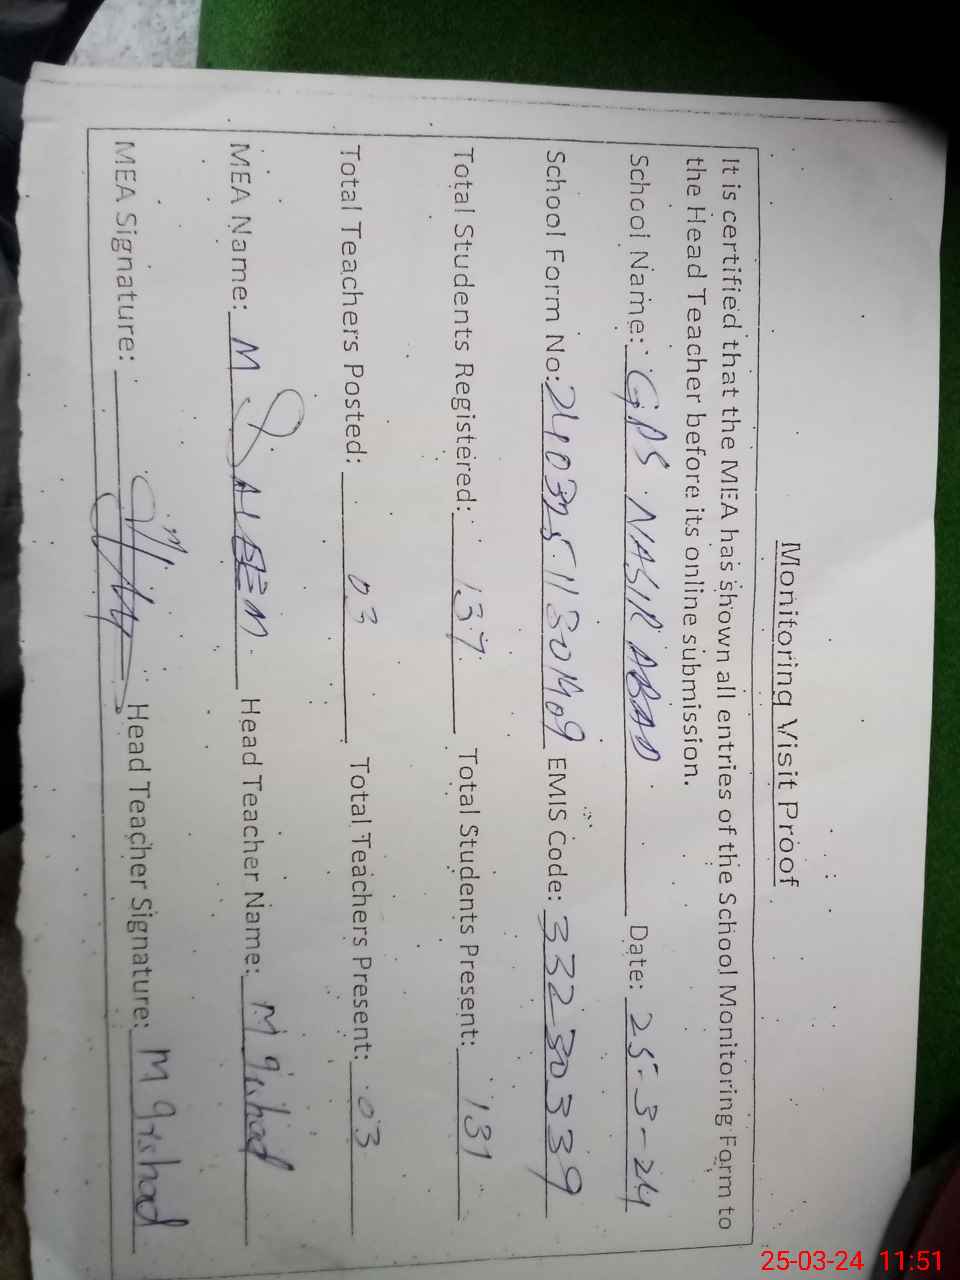 Monitoring Visit Proof
It is certified that the MEA has shown all entries of the School Monitoring Form to
the Head Teacher before its online submission.
School Name: GPS NASIR ABAD Date: 25-3-24
School Form No: EMIS Code: 33230339
Total Students Registered: 137 Total Students Present: 131
Total Teachers Posted: 03 Total Teachers Present: 03
MEA Name: M SALEEM Head Teacher Name: M
MEA Signature: Head Teacher Signature: M
25-03-24 11:51